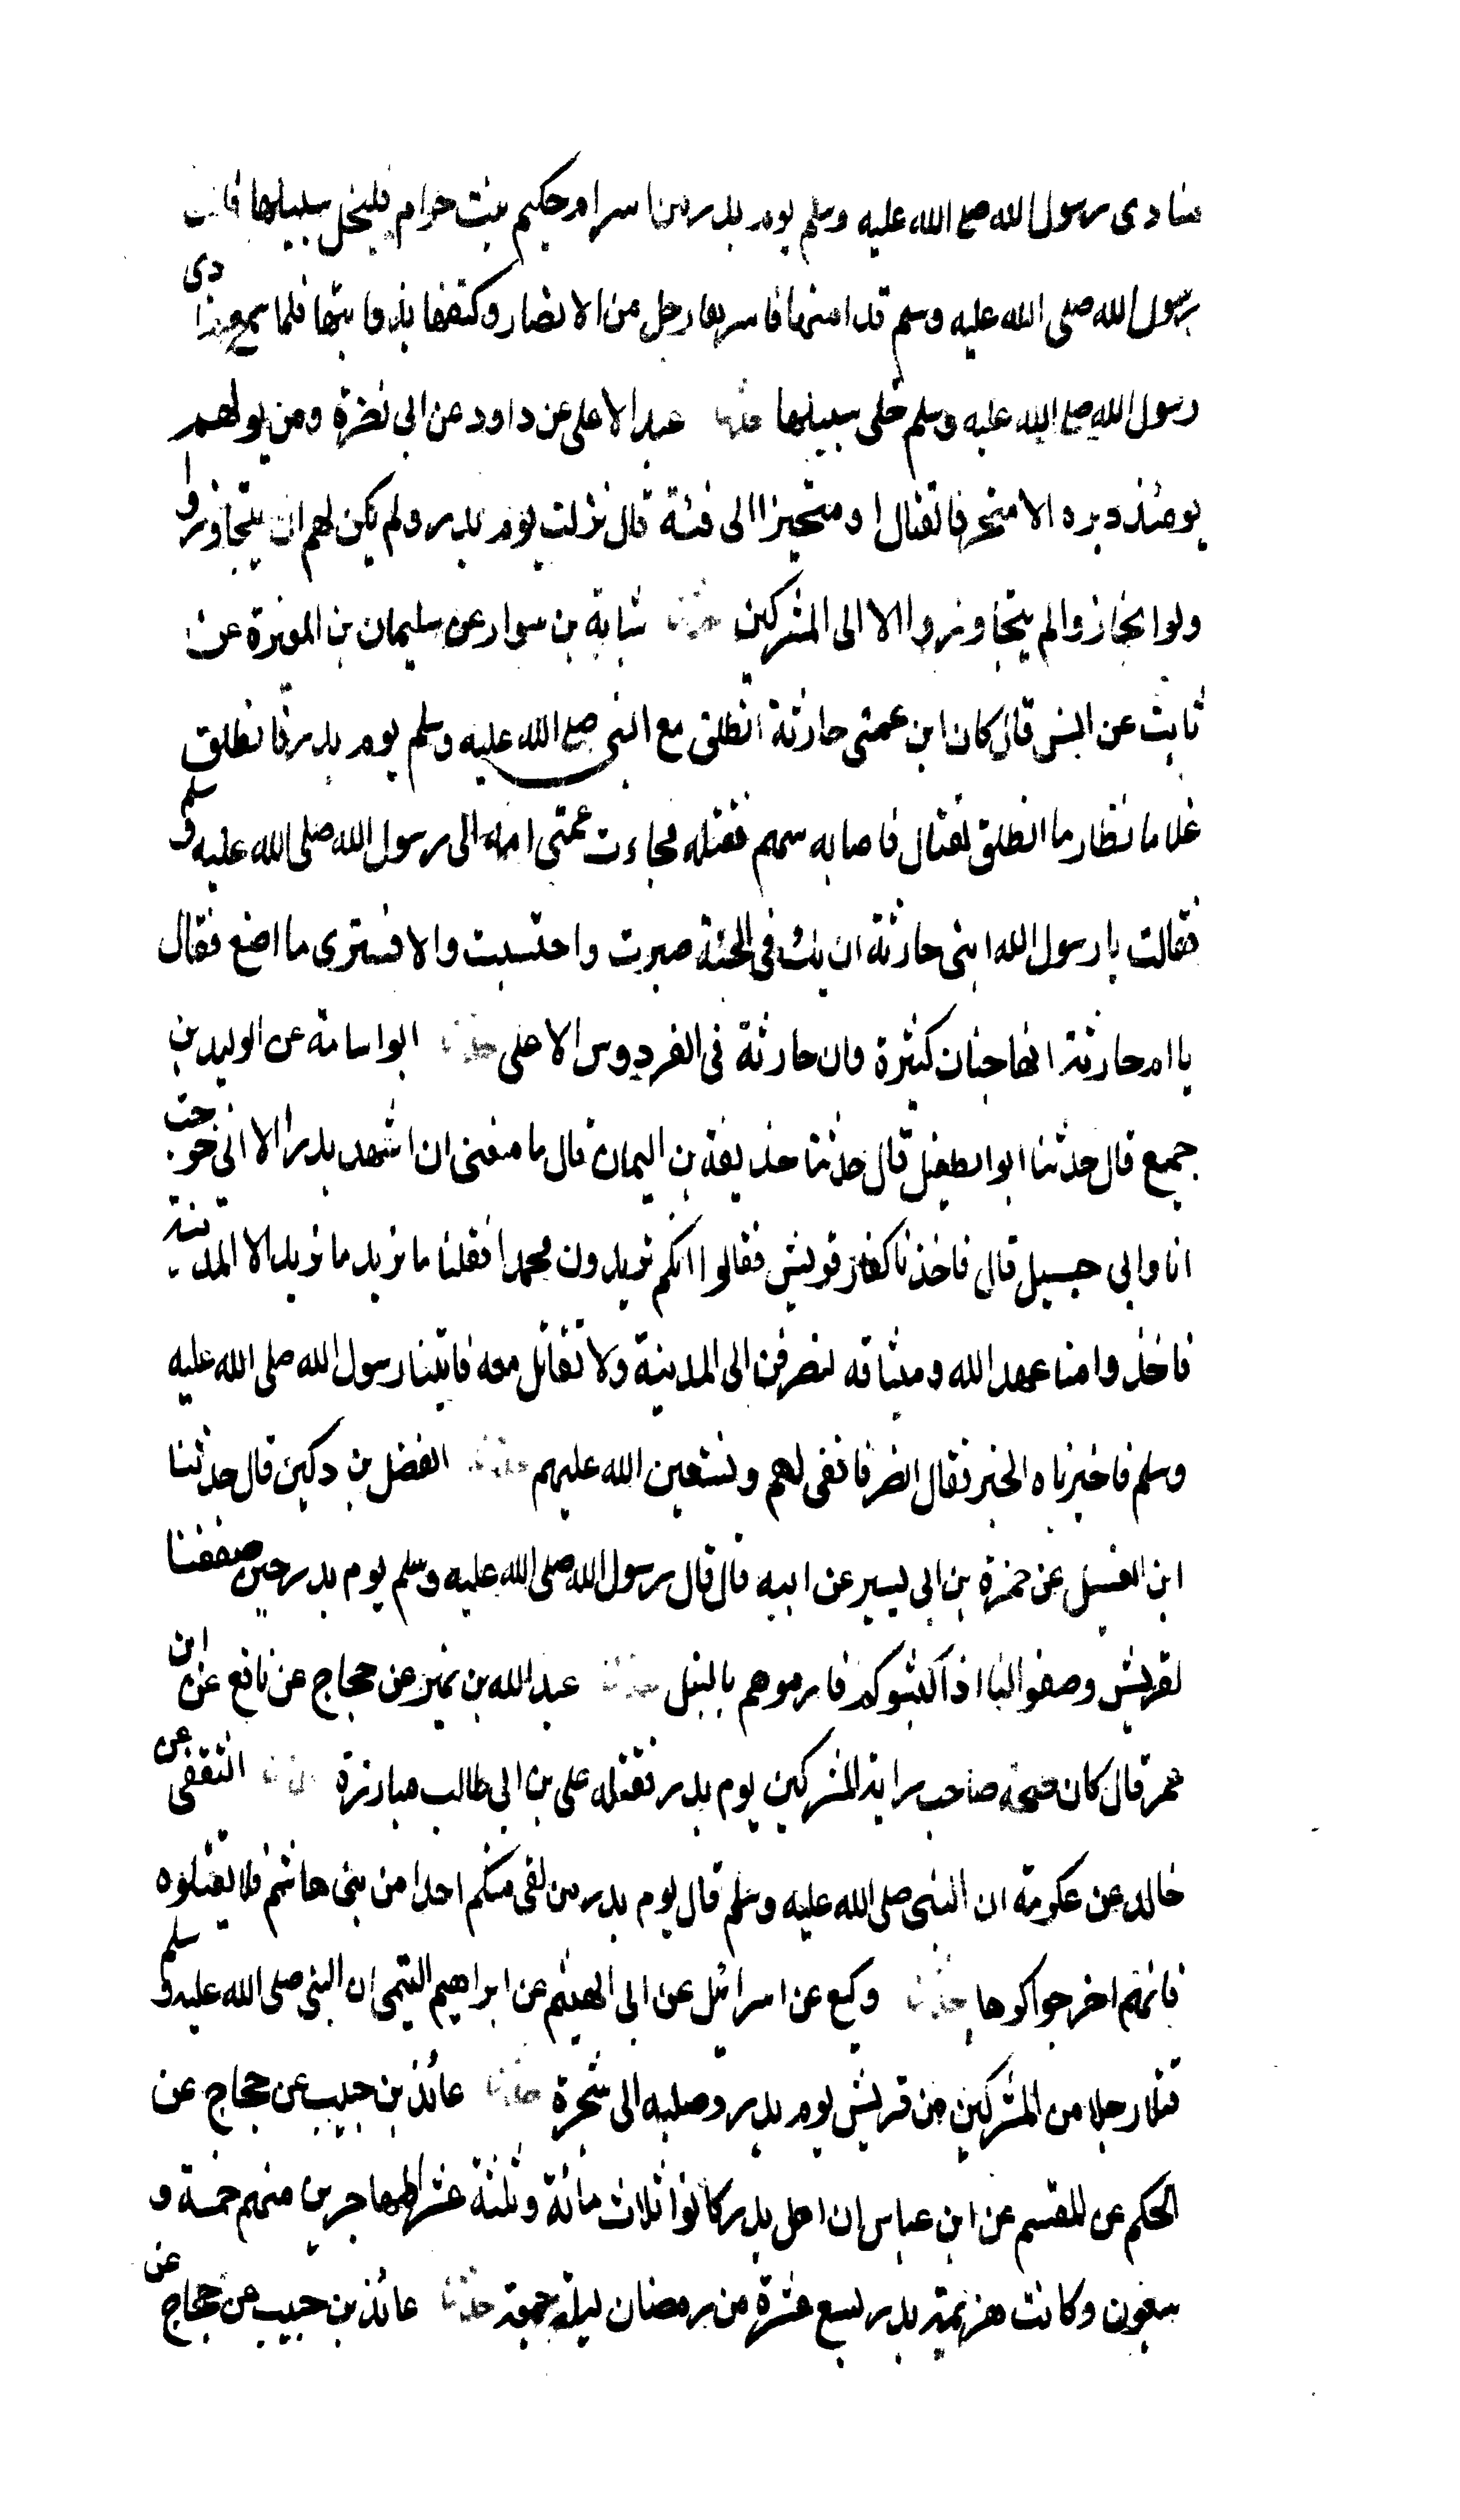 منادى رسول الله صلى الله عليه وسلم يوم بدر من اسر ام حكيم بنت حزام فليخل سبيلها فان
رسول الله صلى الله عليه وسلم قد امنها فاسرها رجل من الانصار وكتفها بذوابتها فلما سمع منادى
رسول الله صلى الله عليه وسلم خلى سبيلها حدثنا عبد الاعلى عن داود عن ابى نضرة ومن يولهم
يومئذ دبره الا متحرفا لقتال او متحيزا الى فئة قال نزلت يوم بدر ولم يكن لهم ان ينحازوا
ولو انحازوا لم ينحازوا الا الى المشركين حدثنا شبابة بن سوار عن سليمان بن المغيرة عن
ثابت عن انس قال كان ابن عمتى حارثة انطلق مع النبى صلى الله عليه وسلم يوم بدر فانطلق
غلاما نظارا ما انطلق لقتال فاصابه سهم فقتله فجاءت عمتى امه الى رسول الله صلى الله عليه وسلم
فقالت يا رسول الله ابنى حارثة ان يك فى الجنة صبرت واحتسبت والا فسترى ما اصنع فقال
يا ام حارثة انها جنان كثيرة وان حارثة فى الفردوس الاعلى حدثنا ابو اسامة عن الوليد بن
جميع قال حدثنا ابو الطفيل قال حدثنا حذيفة بن اليمان قال ما منعنى ان اشهد بدرا الا انى خرجت
انا وابى حسيل قال فاخذنا كفار قريش فقالوا انكم تريدون محمدا فقلنا ما نريد ما نريد الا المدينة
فاخذوا منا عهد الله وميثاقه لننصرفن الى المدينة ولا نقاتل معه فاتينا رسول الله صلى الله عليه
وسلم فاخبرناه الخبر فقال انصرفا نفى لهم ونستعين الله عليهم حدثنا الفضل بن دكين قال حدثنا
ابن الغسيل عن حمزة بن ابى اسيد عن ابيه قال قال رسول الله صلى الله عليه وسلم يوم بدر حين صففنا
لقريش وصفوا لنا اذا اكثبوكم فارموهم بالنبل حدثنا عبد الله بن نمير عن حجاج عن نافع عن ابن
عمر قال كان طلحة صاحب راية المشركين يوم بدر فقتله على بن ابى طالب مبارزة حدثنا الثقفى عن
خالد عن عكرمة ان النبى صلى الله عليه وسلم قال يوم بدر من لقى منكم احدا من بنى هاشم فلا يقتلوه
فانهم اخرجوا كرها حدثنا وكيع عن اسرائيل عن ابى الهيثم عن ابراهيم التيمى ان النبى صلى الله عليه وسلم
قتل رجلا من المشركين من قريش يوم بدر وصلبه الى شجرة حدثنا عائذ بن حبيب عن حجاج عن
الحكم عن المقسم عن ابن عباس ان اهل بدر كانوا ثلاث مائة وثلثة عشر المهاجرين منهم خمسة و
سبعون وكانت هزيمة بدر لسبع عشرة من رمضان ليلة جمعة حدثنا عائذ بن حبيب عن حجاج عن